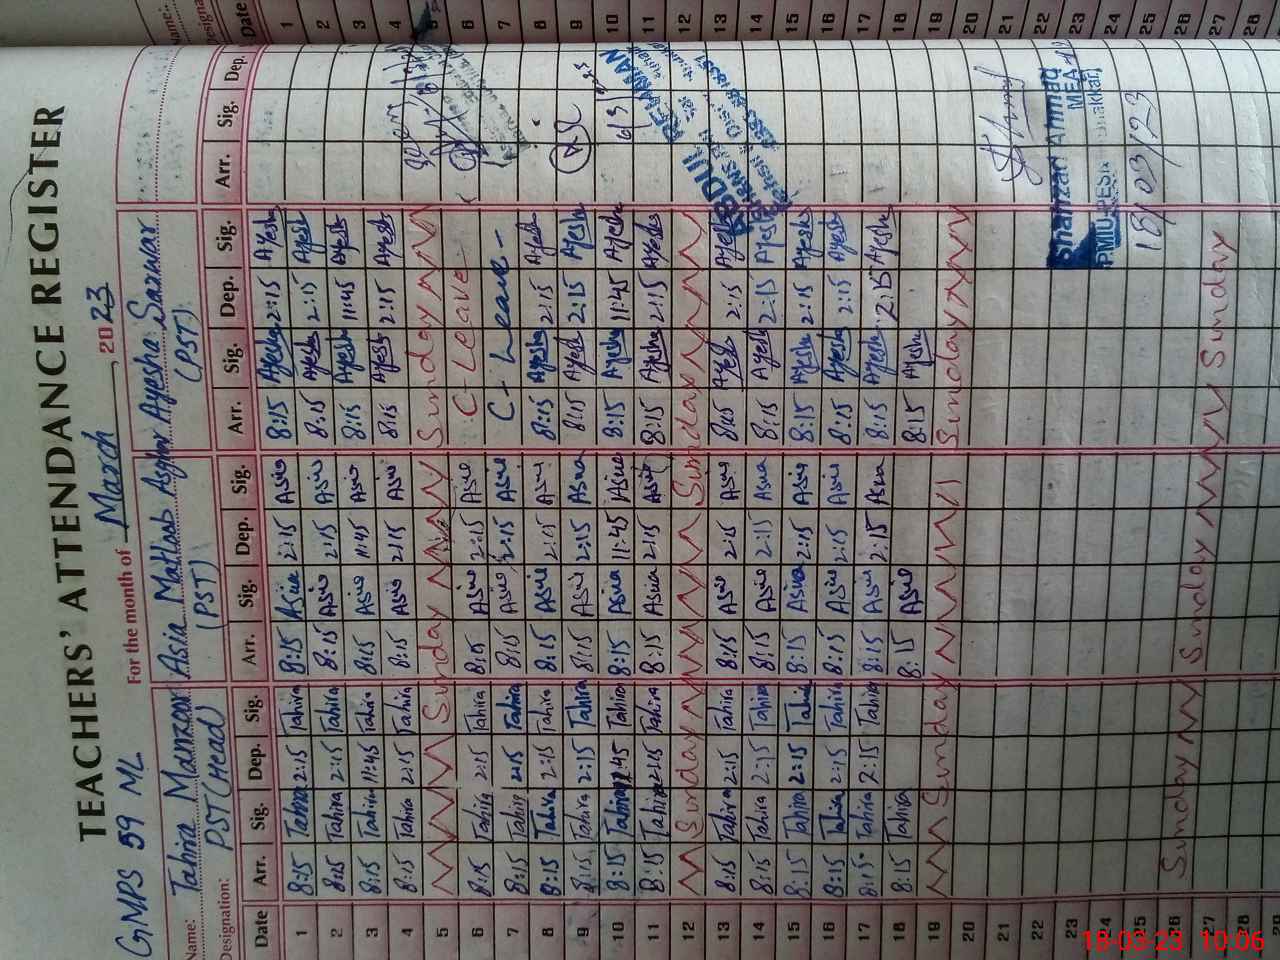 TEACHERS' ATTENDANCE REGISTER
GMPS 59 ML For the month of March, 2023
Name: Tahira Manzoor Asia Mahtab Asghar Ayesha Sarwar
Designation: PST (Head) (PST) (PST)
Date Arr. Sig. Dep. Sig. Arr. Sig. Dep. Sig. Arr. Sig. Dep. Sig. Arr. Sig. Dep.
1 8:15 Tahira 2:15 Tahira 8:15 Asia 2:15 Asia 8:15 Ayesha 2:15 Ayesh
2 8:15 Tahira 2:15 Tahira 8:15 Asia 2:15 Asia 8:15 Ayesh 2:15 Ayesh
3 8:15 Tahira 11:45 Tahira 8:15 Asia 11:45 Asia 8:15 Ayesh 11:45 Ayesh
4 8:15 Tahira 2:15 Tahira 8:15 Asia 2:15 Asia 8:15 Ayesh 2:15 Ayesh
5 Sunday Sunday
6 8:15 Tahira 2:15 Tahira 8:15 Asia 2:15 Asia C-Leave
7 8:15 Tahira 2:15 Tahira 8:15 Asia 2:15 Asia C-Leave-
8 8:15 Tahira 2:15 Tahira 8:15 Asia 2:15 Asia 8:15 Ayesh 2:15 Ayesh
9 8:15 Tahira 2:15 Tahira 8:15 Asia 2:15 Asia 8:15 Ayesh 2:15 Ayesh
10 8:15 Tahira 11:45 Tahira 8:15 Asia 11:45 Asia 8:15 Ayesh 11:45 Ayesh
11 8:15 Tahira 2:15 Tahira 8:15 Asia 2:15 Asia 8:15 Ayesha 2:15 Ayesha
12 Sunday Sunday
13 8:15 Tahira 2:15 Tahira 8:15 Asia 2:15 Asia 8:15 Ayesh 2:15 Ayesh
14 8:15 Tahira 2:15 Tahira 8:15 Asia 2:15 Asia 8:15 Ayesh 2:15 Ayesh
15 8:15 Tahira 2:15 Tahira 8:15 Asia 2:15 Asia 8:15 Ayesh 2:15 Ayesh
16 8:15 Tahira 2:15 Tahira 8:15 Asia 2:15 Asia 8:15 Ayesh 2:15 Ayesh
17 8:15 Tahira 2:15 Tahira 8:15 Asia 2:15 Asia 8:15 Ayesh 2:15 Ayesh
18 8:15 Tahira 8:15 Asia 8:15 Ayesh
19 Sunday Sunday
20
21
22
23
24
25
26 Sunday Sunday
27 Sunday
28
ABDUL REHMAN
Ahmad
MEA
PMIU-PESRP
18/03/23
Name:
Date 1 2 3 4 5 6 7 8 9 10 11 12 13 14 15 16 17 18 19 20 21 22 23 24 25 26 27 28
18-03-23 10:06